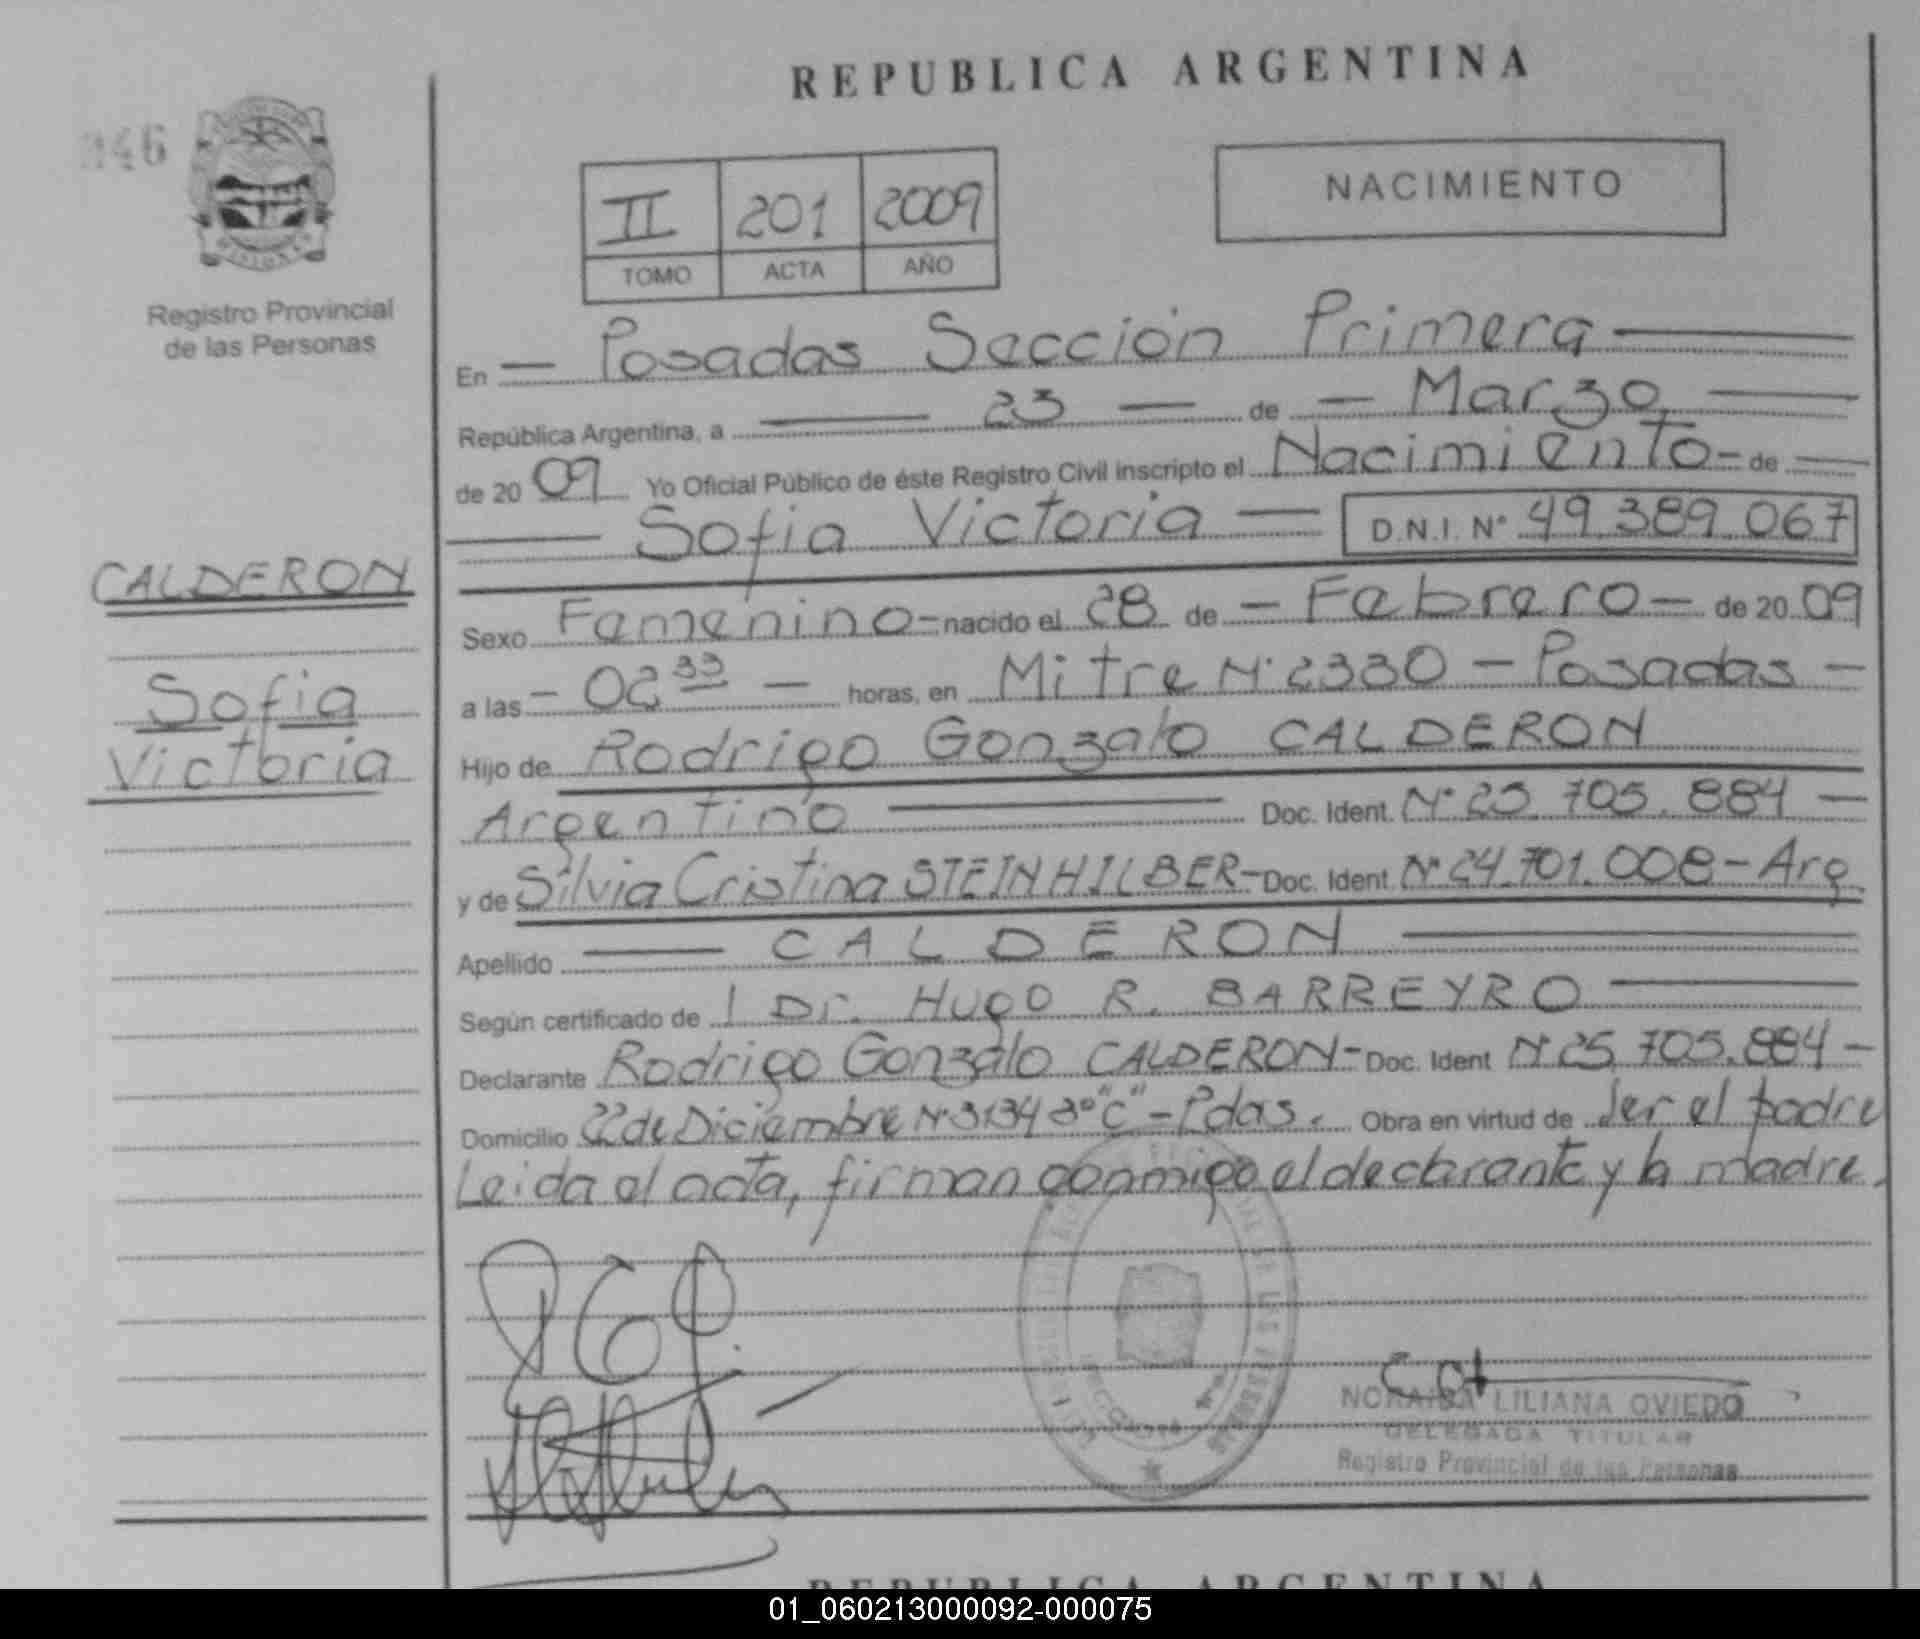 REPUBLICA ARGENTINA
346
NACIMIENTO
II 201 2009
TOMO ACTA AÑO
Registro Provincial
de las Personas
En Posadas Sección Primera
República Argentina, a 23 de Marzo
de 2009 Yo Oficial Público de éste Registro Civil inscripto el Nacimiento de
Sofia Victoria D.N.I. Nº 49.389.067
CALDERON
Sofia
Victoria
Sexo Femenino nacido el 28 de Febrero de 2009
a las 02 33 horas, en Mitre Nº 2330 - Posadas -
Hijo de Rodrigo Gonzalo CALDERON
Argentino Doc. Ident. Nº 25.705.884 -
y de Silvia Cristina STEINHILBER - Doc. Ident. Nº 24.701.008 - Arg.
Apellido CALDERON
Según certificado de 1 Dr. Hugo R. BARREYRO
Declarante Rodrigo Gonzalo CALDERON - Doc. Ident Nº 25.705.884 -
Domicilio 22 de Diciembre Nº 3134 3º "C" - Pdas. Obra en virtud de Ser el padre
Leida el acta, firman conmigo el declarante y la madre.
NORAISA LILIANA OVIEDO
DELEGADA TITULAR
Registro Provincial de las Personas
REPUBLICA ARGENTINA
01_060213000092-000075